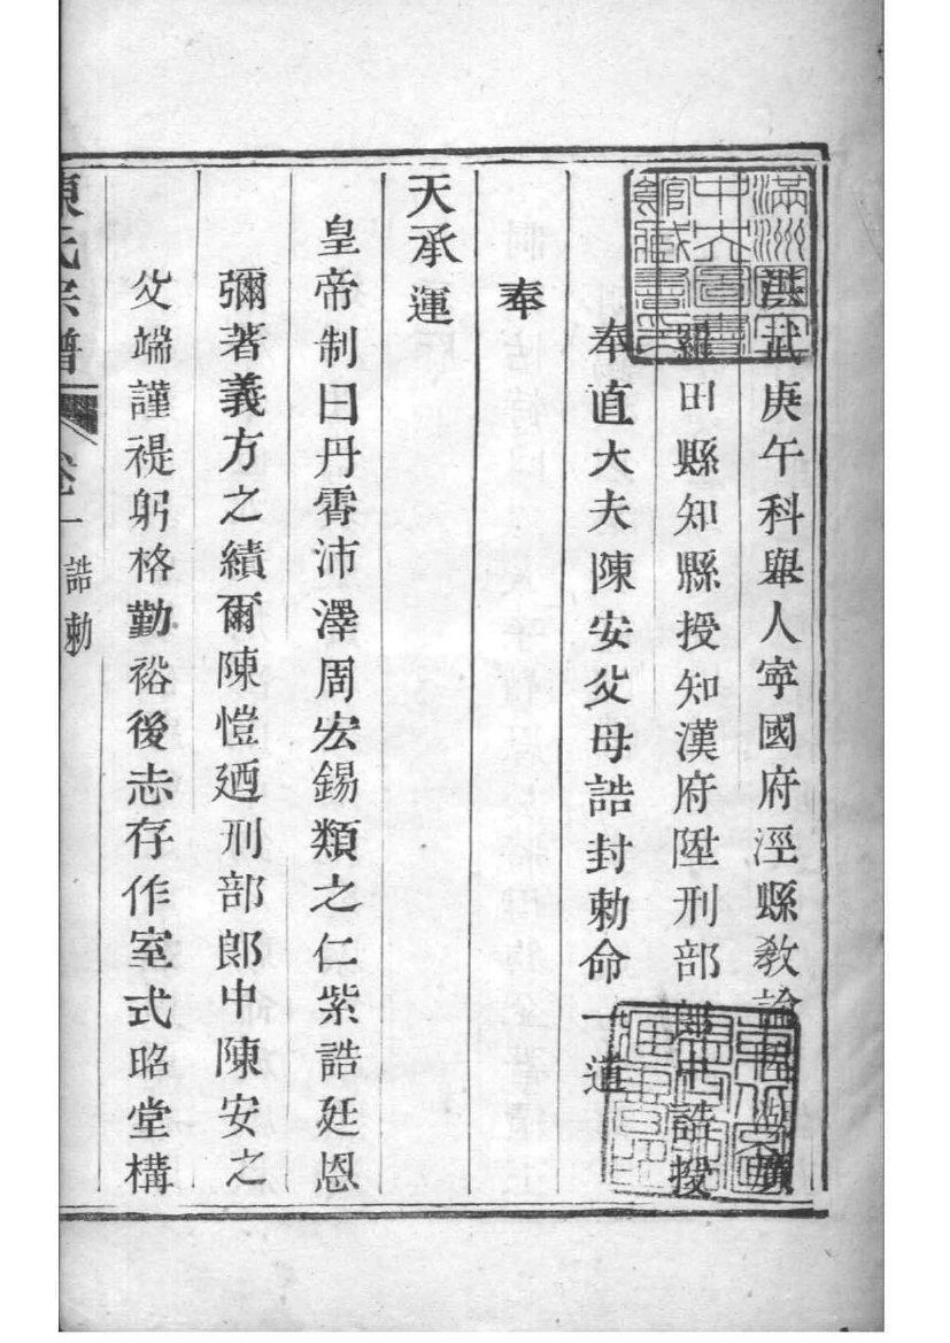 洪武庚午科舉人寧國府涇縣教諭陞湖廣
羅田縣知縣授知漢府陞刑部郎中誥授
奉直大夫陳安父母誥封勅命一道
奉
天承運
皇帝制曰丹霄沛澤周宏錫類之仁紫誥廷恩
彌著義方之績爾陳愷廼刑部郎中陳安之
父端謹禔躬格勤裕後志存作室式昭堂構
陳氏宗譜 卷一 誥勅
滿洲國
中央圖書
館藏書印